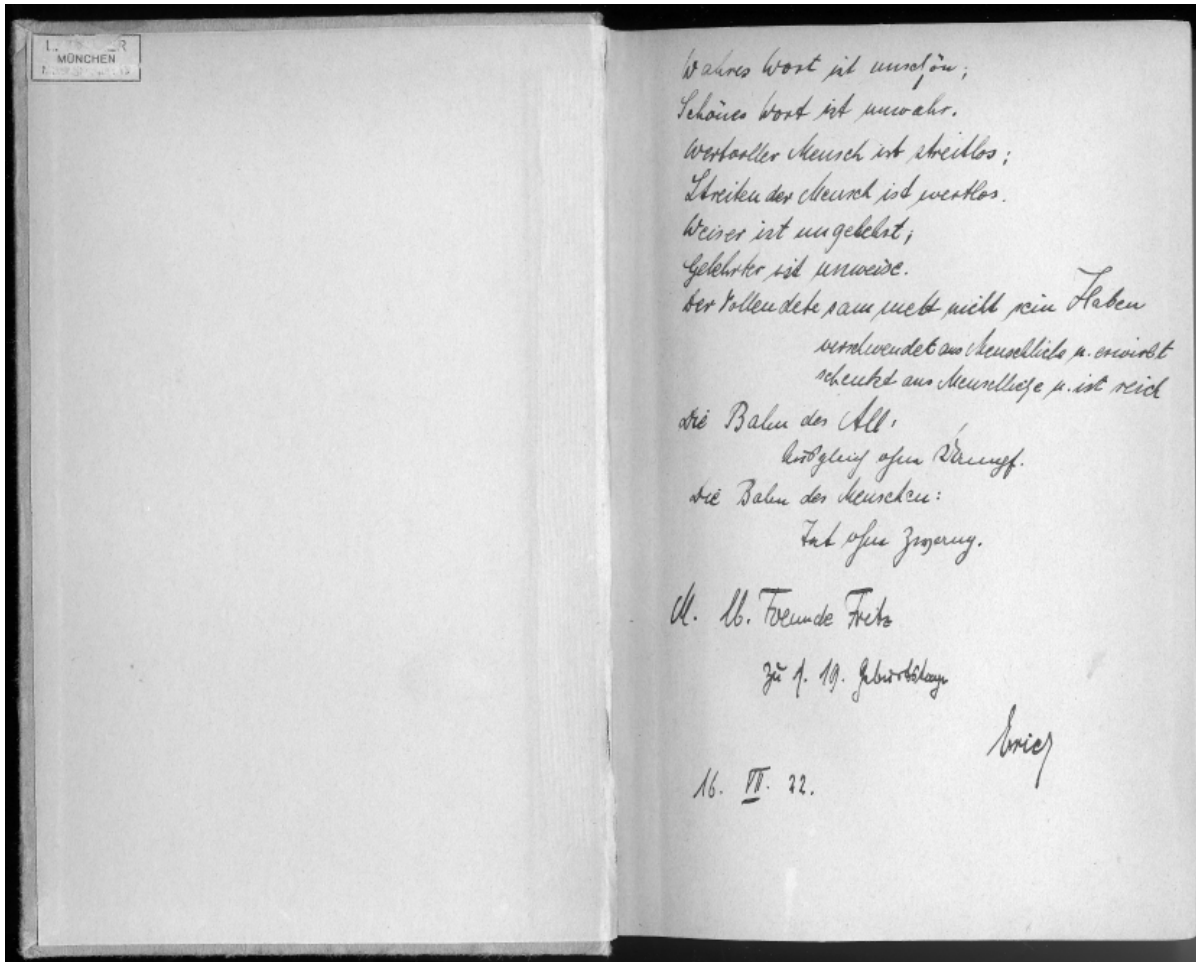 MÜNCHEN
Wahres Wort ist unschön;
Schönes Wort ist unwahr.
Wertvoller Mensch ist streitlos;
Streitender Mensch ist wertlos.
Weiser ist ungelehrt;
Gelehrter ist unweise.
Der Vollendete sammelt nicht sein Haben
verschwendet aus Menschliebe u. erwirbt
schenkt aus Menschliebe u. ist reich
Die Bahn des All:
Ausgleich ohne Kampf.
Die Bahn des Menschen:
Tat ohne Zwang.
M. lb. Freunde Fritz
zu s. 19. Geburtstage
Erich
16. VII. 22.